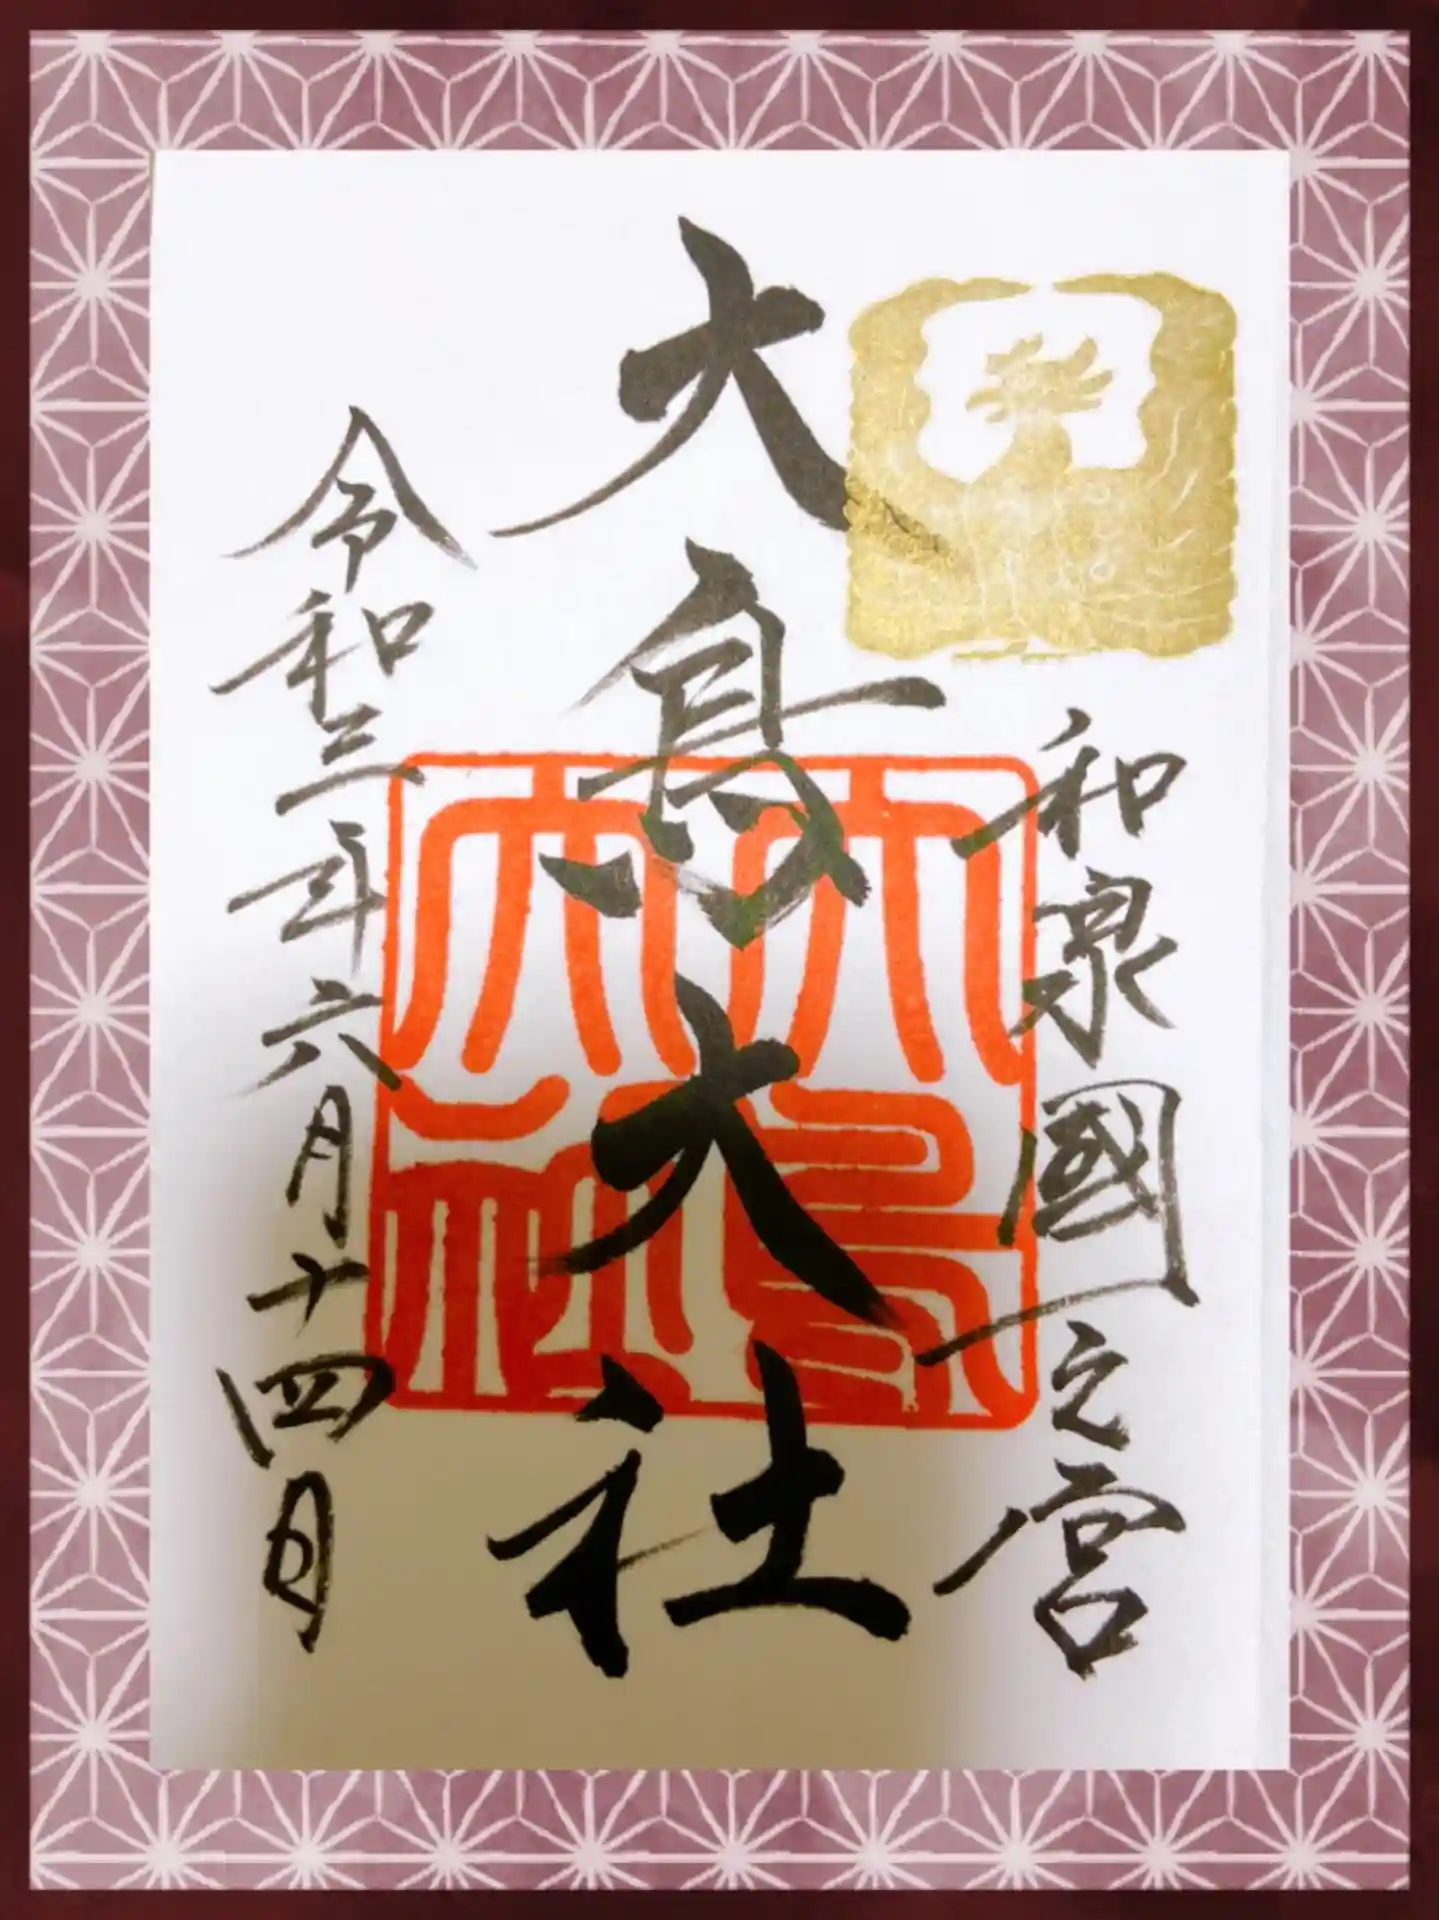 和泉國一之宮
大鳥大社
大鳥大社
令和三年六月十四日